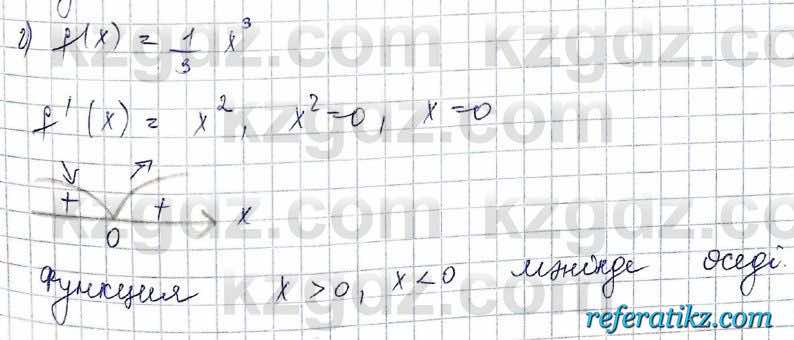 г) f(x) = 1/3 x³
f'(x) = x², x² = 0, x = 0
+ + x
0
Функция x > 0, x < 0 мәнінде өседі.
kzgdz.com kzgdz.com
kzgdz.com kzgdz.com
kzgdz.com kzgdz.com
referatikz.com